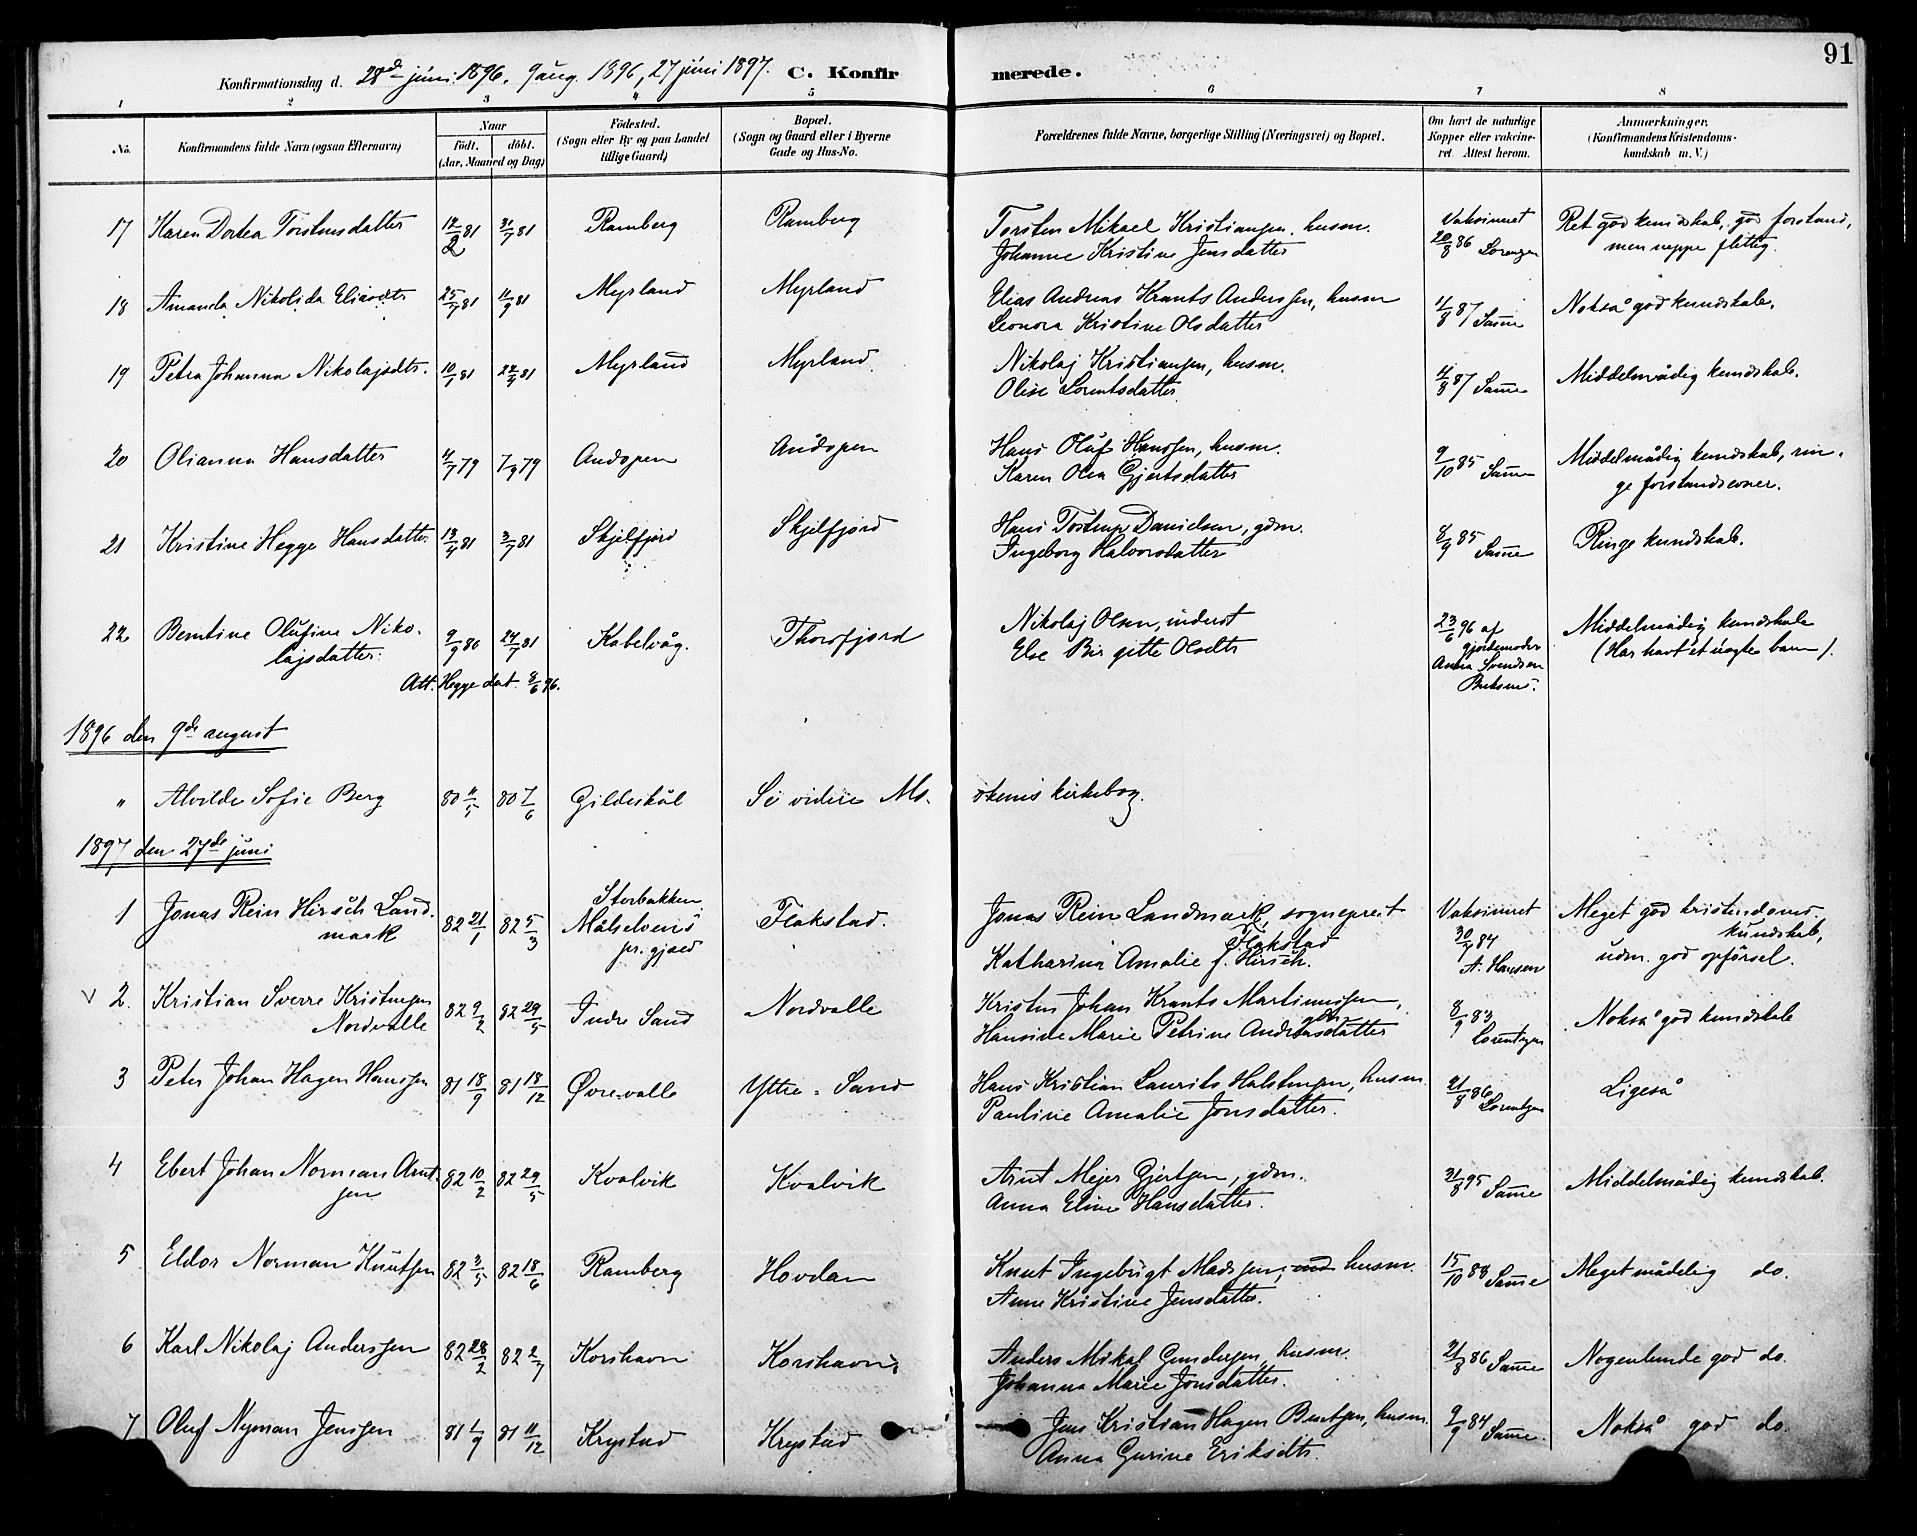 91
Konfirmationsdag d. 28de juni 1896. 9 aug. 1896, 27 juni 1897. C. Konfirmerede.
1 2 3 4 5 6 7 8
No. Konfirmandens fulde Navn (ogsaa Efternavn) Naar födt. döbt. (Aar, Maaned og Dag) Födested. (Sogn eller By og paa Landet tillige Gaard) Bopæl. (Sogn og Gaard eller i Byerne Gade og Hus-No. Forældrenes fulde Navne, borgerlige Stilling (Næringsvei) og Bopæl. Om havt de naturlige Kopper eller vakcineret. Attest herom. Anmærkninger. (Konfirmandens Kristendomskundskab m. V.)
17 Karen Dortea Torstensdatter 12/2 81 31/7 81 Ramberg Ramberg Torsten Mikael Kristiansen, husm. Vaksineret Ret god kundskab, god forstand,
Johanne Kristine Jensdatter 20/8 86 Lorenzen men neppe flittig.
18 Amanda Nikolida Eliasdtr 25/7 81 11/9 81 Myrland Myrland Elias Andreas Krants Anderssen, husm 11/8 87 Samme Nokså god kundskab.
Leonora Kristine Olsdatter
19 Petra Johanna Nikolajsdtr. 10/1 81 24/4 81 Myrland Myrland Nikolaj Kristiansen, husm. 4/8 87 Samme Middelmådig kundskab.
Olise Lorentsdatter
20 Olianna Hansdatter 4/7 79 7/9 79 Andopen Andopen Hans Oluf Hanssen, husm. 9/10 85 Samme Middelmådig kundskab, rin-
Karen Olea Gjertsdatter ge forstandsevner.
21 Kristine Hegge Hansdatter 13/4 81 3/7 81 Skjelfjord Skjelfjord Hans Tostrup Danielsen, gdm. 8/9 85 Samme Ringe kundskab.
Ingeborg Halvorsdatter
22 Berntine Olufine Niko- 9/9 80 24/7 81 Kabelvåg. Thorsfjord Nikolaj Olsen, inderst 23/6 96 af Middelmådig kundskab
lajsdatter. Else Birgitte Olsdtr gjordemoder (Har havt et uægte barn).
Att. Hegge dat. 8/6 96. Anna Svendsen
Buksnes.
1896 den 9de august
" Alvilde Sofie Berg 80 11/5 80 7/6 Gildeskål Se videre Moskenes kirkebog.
1897 den 27de juni
1 Jonas Rein Hirsch Land- 82 21/1 82 5/3 Storbakken Flakstad. Jonas Rein Landmark, sogneprest Vaksineret Meget god kristendoms-
mark Målselvens Flakstad 30/7 84 kundskab,
pr. gjæld Katharina Amalie f. Hirsch. A. Hansen udm. god opførsel.
V 2. Kristian Sverre Kristensen 82 9/2 82 29/5 Indre Sand Nordvalle Kristen Johan Krants Martinussen, 8/9 83 Nokså god kundskab
Nordvalle Hansine Marie Petrine Andreasdatter Lorentzen
3 Peter Johan Hagen Hanssen 81 18/9 81 18/12 Øvrevalle Yttre-Sand Hans Kristian Laurits Halstensen, husm. 21/8 86 Ligeså
Pauline Amalie Jonsdatter. Lorentzen
4 Ebert Johan Norman Arnt- 82 10/2 82 29/5 Kvalvik Kvalvik Arnt Mejer Gjertsen, gdm. 31/8 95 Samme Middelmådig kundskab.
sen Anna Eline Hansdatter.
5 Eldor Norman Knutsen 82 3/5 82 18/6 Ramberg Hovdan Knut Ingebrigt Madssen, husm. 15/10 88 Samme Meget mådelig do.
Anne Kristine Jensdatter.
6 Karl Nikolaj Anderssen 82 28/2 82 2/7 Korshavn Korshavn Anders Mikal Gundersen, husm. 21/8 86 Samme Nogenlunde god do.
Johanna Marie Jonsdatter.
7 Oluf Nyman Jenssen 81 1/9 81 11/12 Krystad Krystad Jens Kristian Hagen Berntsen, husm. 9/9 84 Samme. Nokså god do.
Anna Gurine Eriksdtr.